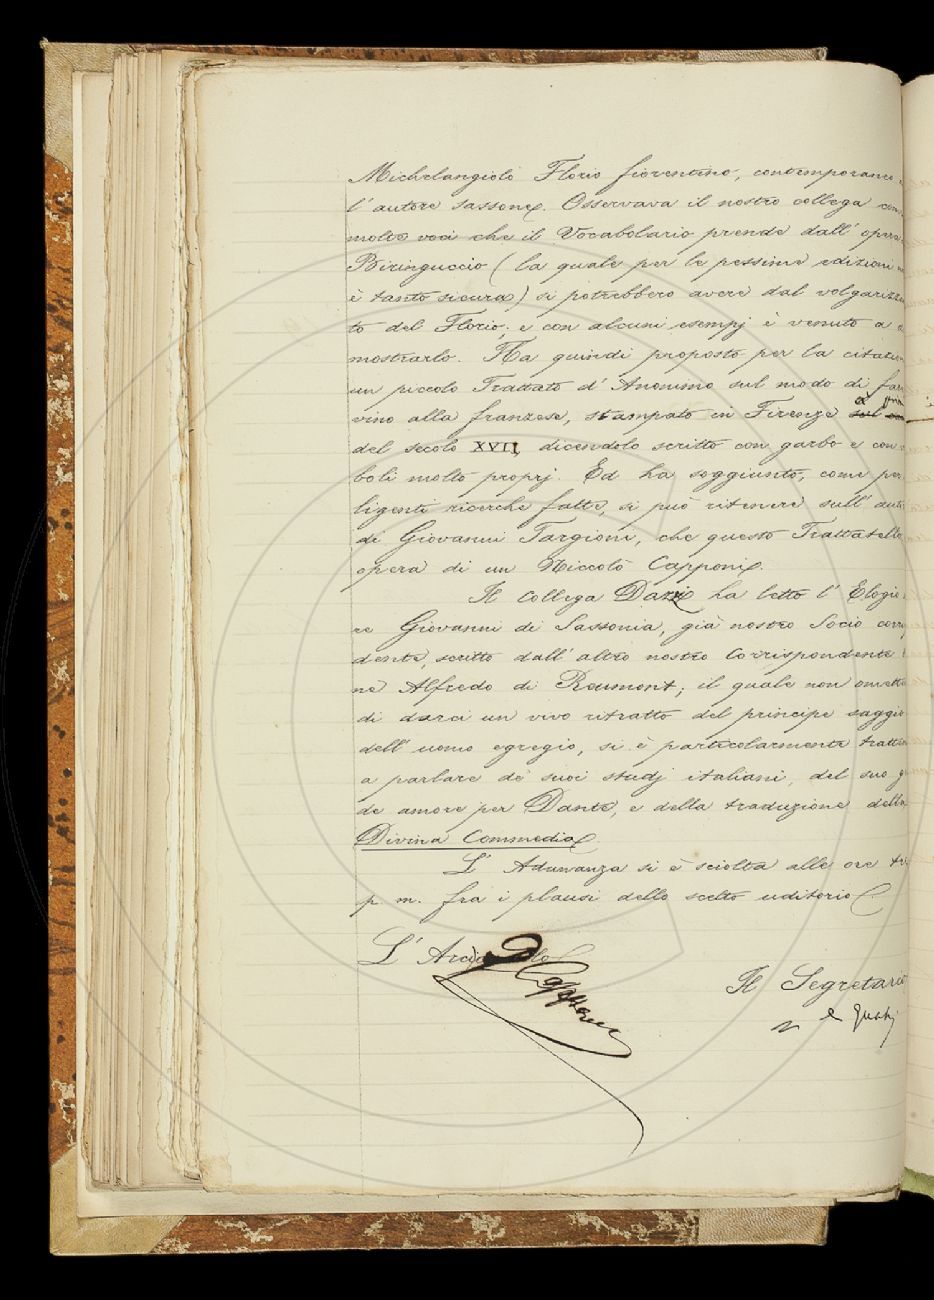 Michelangiolo Florio fiorentino, contemporaneo
l'autore sassone. Osservava il nostro collega come
molte voci che il Vocabolario prende dall'opera
Biringuccio (la quale per le pessime edizioni
è tanto sicura) si potrebbero avere dal volgarizza
to del Florio; e con alcuni esempj è venuto a
mostrarlo. Ha quindi proposto per la citatura
un piccolo Trattato d'Anonimo sul modo di fare
vino alla franzese, stampato in Firenze
del secolo XVII, dicendolo scritto con garbo e con
boli molto proprj. Ed ha soggiunto, come per
ligenti ricerche fatte, si può ritenere sull'auto
di Giovanni Targioni, che questo Trattatello
opera di un Niccolò Capponi.
Il collega Dazzi ha letto l'Elogio
re Giovanni di Sassonia, già nostro Socio corri
dente, scritto dall'altro nostro Corrispondente
ne Alfredo di Reumont; il quale non omette
di darci un vivo ritratto del principe saggio
dell'uomo egregio, si è particolarmente tratte
a parlare de' suoi studj italiani, del suo g
de amore per Dante, e della traduzione della
Divina Commedia.
L'Adunanza si è sciolta alle ore
p. m. fra i plausi dello scelto uditorio.
L'Arci
G Capponi
Il Segretario